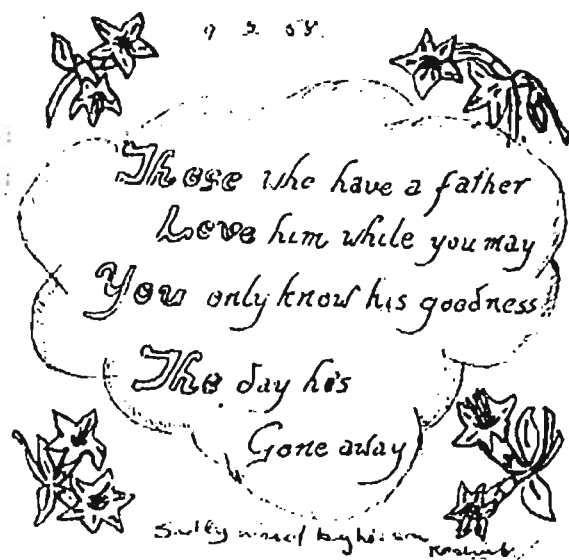 9 3 58.
Those who have a father
Love him while you may
You only know his goodness
The day he's
Gone away
Sadly missed by his son